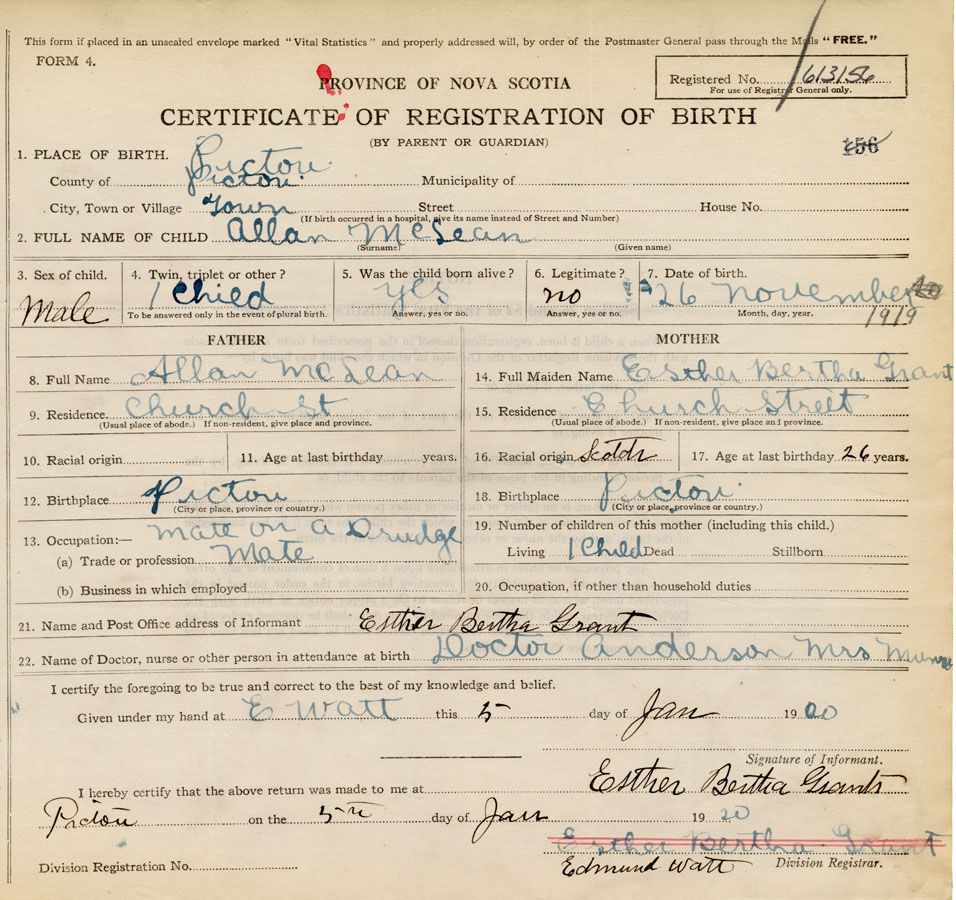 This form if placed in an unsealed envelope marked "Vital Statistics" and properly addressed will, by order of the Postmaster General pass through the Mails "FREE."
FORM 4.
PROVINCE OF NOVA SCOTIA
Registered No. 613156
For use of Registrar General only.
CERTIFICATE OF REGISTRATION OF BIRTH
(BY PARENT OR GUARDIAN)
156
1. PLACE OF BIRTH. Picton
County of Picton Municipality of
City, Town or Village Town Street House No.
(If birth occurred in a hospital, give its name instead of Street and Number)
2. FULL NAME OF CHILD Allan McLean
(Surname) (Given name)
3. Sex of child. 4. Twin, triplet or other? 5. Was the child born alive? 6. Legitimate? 7. Date of birth.
Male 1 Child yes no 26 November
To be answered only in the event of plural birth. Answer, yes or no. Answer, yes or no. Month, day, year. 1919
FATHER MOTHER
8. Full Name Allan McLean 14. Full Maiden Name Esther Bertha Grant
9. Residence. Church St 15. Residence Church Street
(Usual place of abode.) If non-resident, give place and province. (Usual place of abode.) If non-resident, give place and province.
10. Racial origin 11. Age at last birthday years. 16. Racial origin Scotch 17. Age at last birthday 26 years.
12. Birthplace Picton 18. Birthplace Picton
(City or place, province or country.) (City or place, province or country.)
13. Occupation:— Mate on a Drudge 19. Number of children of this mother (including this child.)
(a) Trade or profession Mate Living 1 Child Dead Stillborn
(b) Business in which employed 20. Occupation, if other than household duties
21. Name and Post Office address of Informant Esther Bertha Grant
22. Name of Doctor, nurse or other person in attendance at birth Doctor Anderson Mrs Munro
I certify the foregoing to be true and correct to the best of my knowledge and belief.
Given under my hand at E Watt this 5 day of Jan 1920
Signature of Informant.
I hereby certify that the above return was made to me at Esther Bertha Grant
Picton on the 5th day of Jan 1920
Esther Bertha Grant
Division Registration No. Edmund Watt Division Registrar.